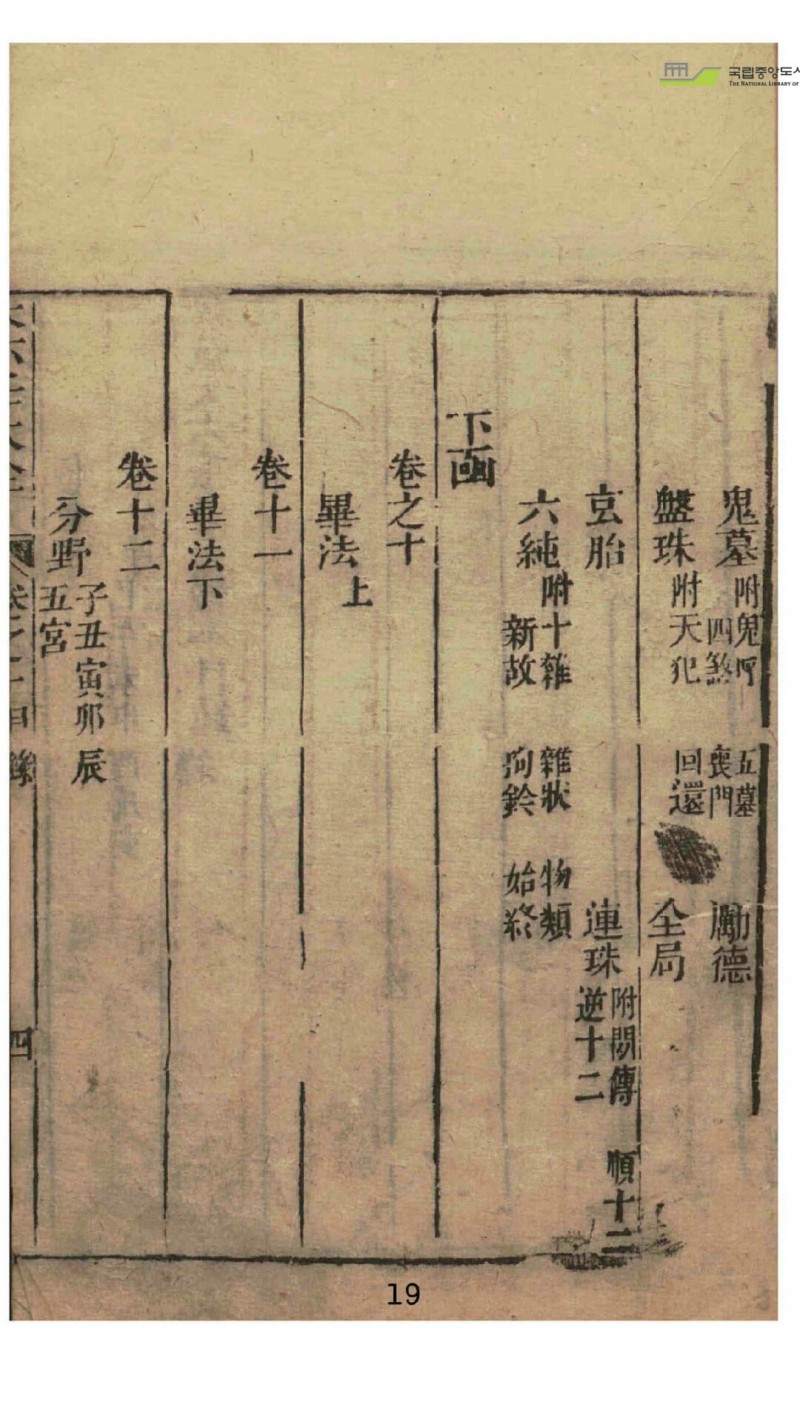 鬼墓 附鬼呼 四煞 五墓 喪門 勵德
盤珠 附天犯 回還 全局
玄胎 連珠 附間傳 順十二 逆十二
六純 附十雜 新故 雜狀 物類 始終
下函
卷之十
畢法上
卷十一
畢法下
卷十二
分野 子丑寅卯辰 五宮
四
국립중앙도서
THE NATIONAL LIBRARY OF
19